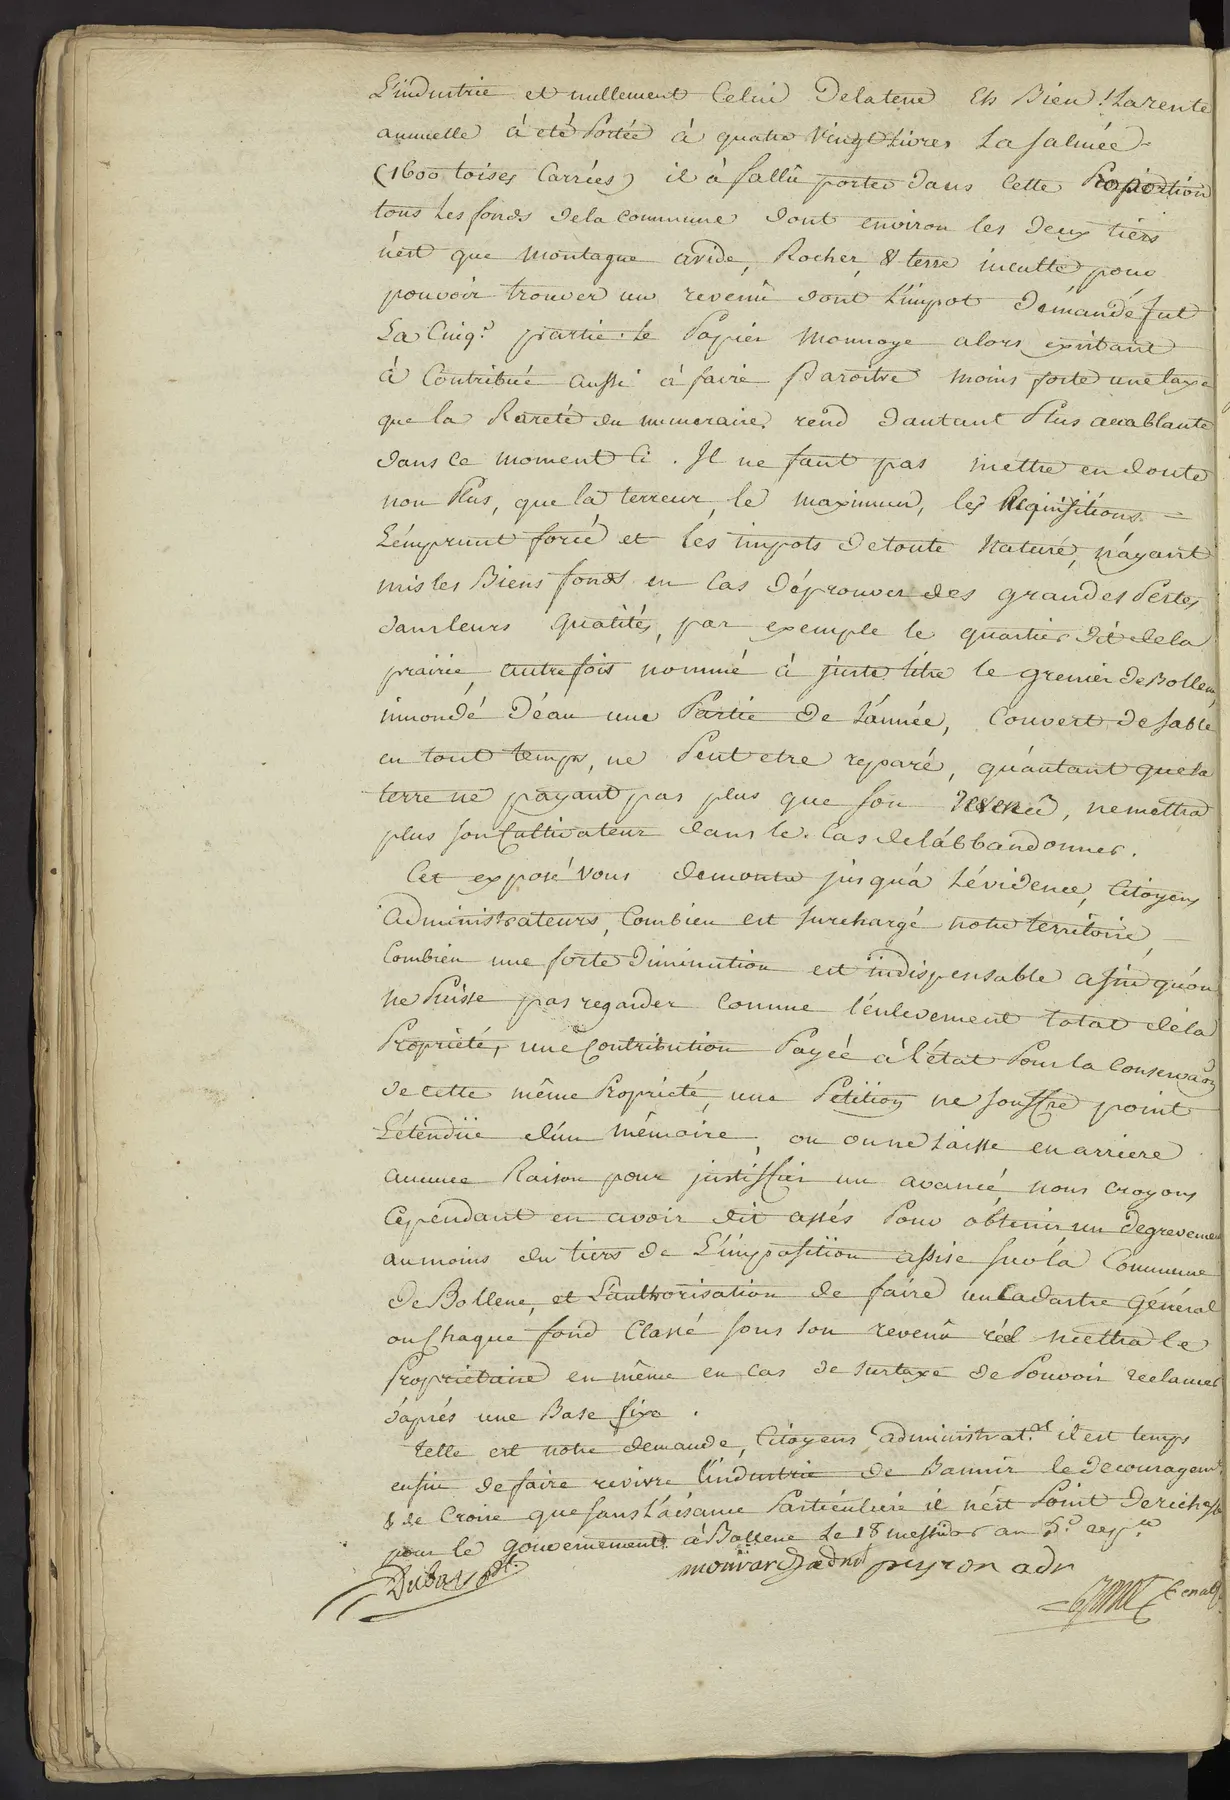 L'industrie et nullement Celui Delaterre Eh Bien ! La rente
annuelle à eté Portée à quatre Vingt Livres La salmée
(1600 toises Carrées) il à fallû porter dans Cette Proportion
tous Les fonds dela commune dont environ les deux tiers
n'est que montagne aride, Rocher, & terre inculte pour
pouvoir trouver un revenû dont L'impot démandé fut
La Cinq.e partie. Le Papier Monnoye alors existant
à Contribué aussi à faire Paroitre moins forte une taxe
que la Rareté du numeraire rend dautant Plus accablante
dans ce moment Ci. Il ne faut pas mettre en doute
non Plus, que la terreur, le maximum, les Requisitions
L'émprunt forcé et les impots de toute Nature, n'ayant
mis les Biens fonds en Cas d'éprouver des grandes Pertes
dans leurs qualités, par exemple le quartier dit de la
prairie, autrefois nommé à juste titre le grenier de Bollene,
innondé d'éau une Partie de L'année, Couvert de sable
en tout temps, ne Peut etre reparé, qu'autant que la
terre ne payant pas plus que son revenû, ne mettra
plus son Cultivateur dans le Cas de l'abbandonner.
Cet exposé Vous demontre jusqu'a L'évidence, Citoyens
administrateurs, Combien est surchargé notre territoire,
Combien une forte diminution est indispensable afin qu'on
ne Puisse pas regarder Comme l'énlevement total de la
Propriété, une Contribution Payée à L'état Pour la Conservaon
de cette même Propriété, une Petition ne souffre point
L'étendüe d'un mêmoire, ou on ne Laisse en arriere
aucune Raison pour justiffier un avancé nous croyons
Cépéndant en avoir dit assés Pour obtenir un degrevement
au moins du tiers de L'imposition assise sur la Commune
de Bollene, et L'authorisation de faire un Cadastre Général
ou Chaque fond Classé sous son revenû réel mettra le
Proprietaire en même en cas de surtaxe de Pouvoir reclamer
d'aprés une Base fixe.
telle est notre demande, Citoyens administrat.rs il est temps
enfin de faire revivre L'industrie de Bannir le decouragemt.
& de Croire que sans L'aisance Particuliere il n'est Point de richesse
pour le gouvernement. à Bollene le 18 messidor an 5.e rep.ne
peyron adt